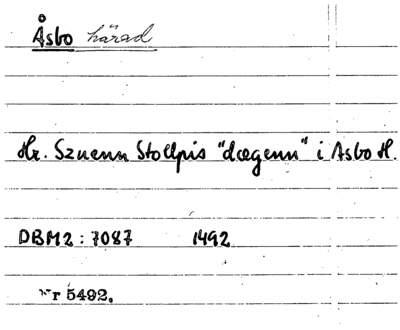 Åsbo härad
Hr. Sznenn Stollpis "dægenn" i Asbo H.
DBM2: 7087 1492
Nr 5492.